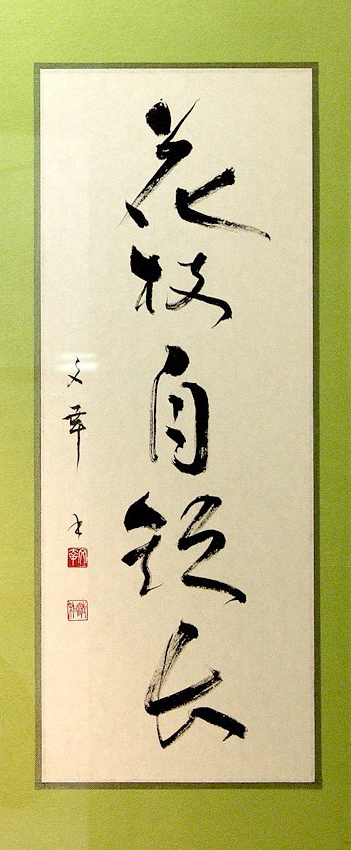 花枝自短長
文華書